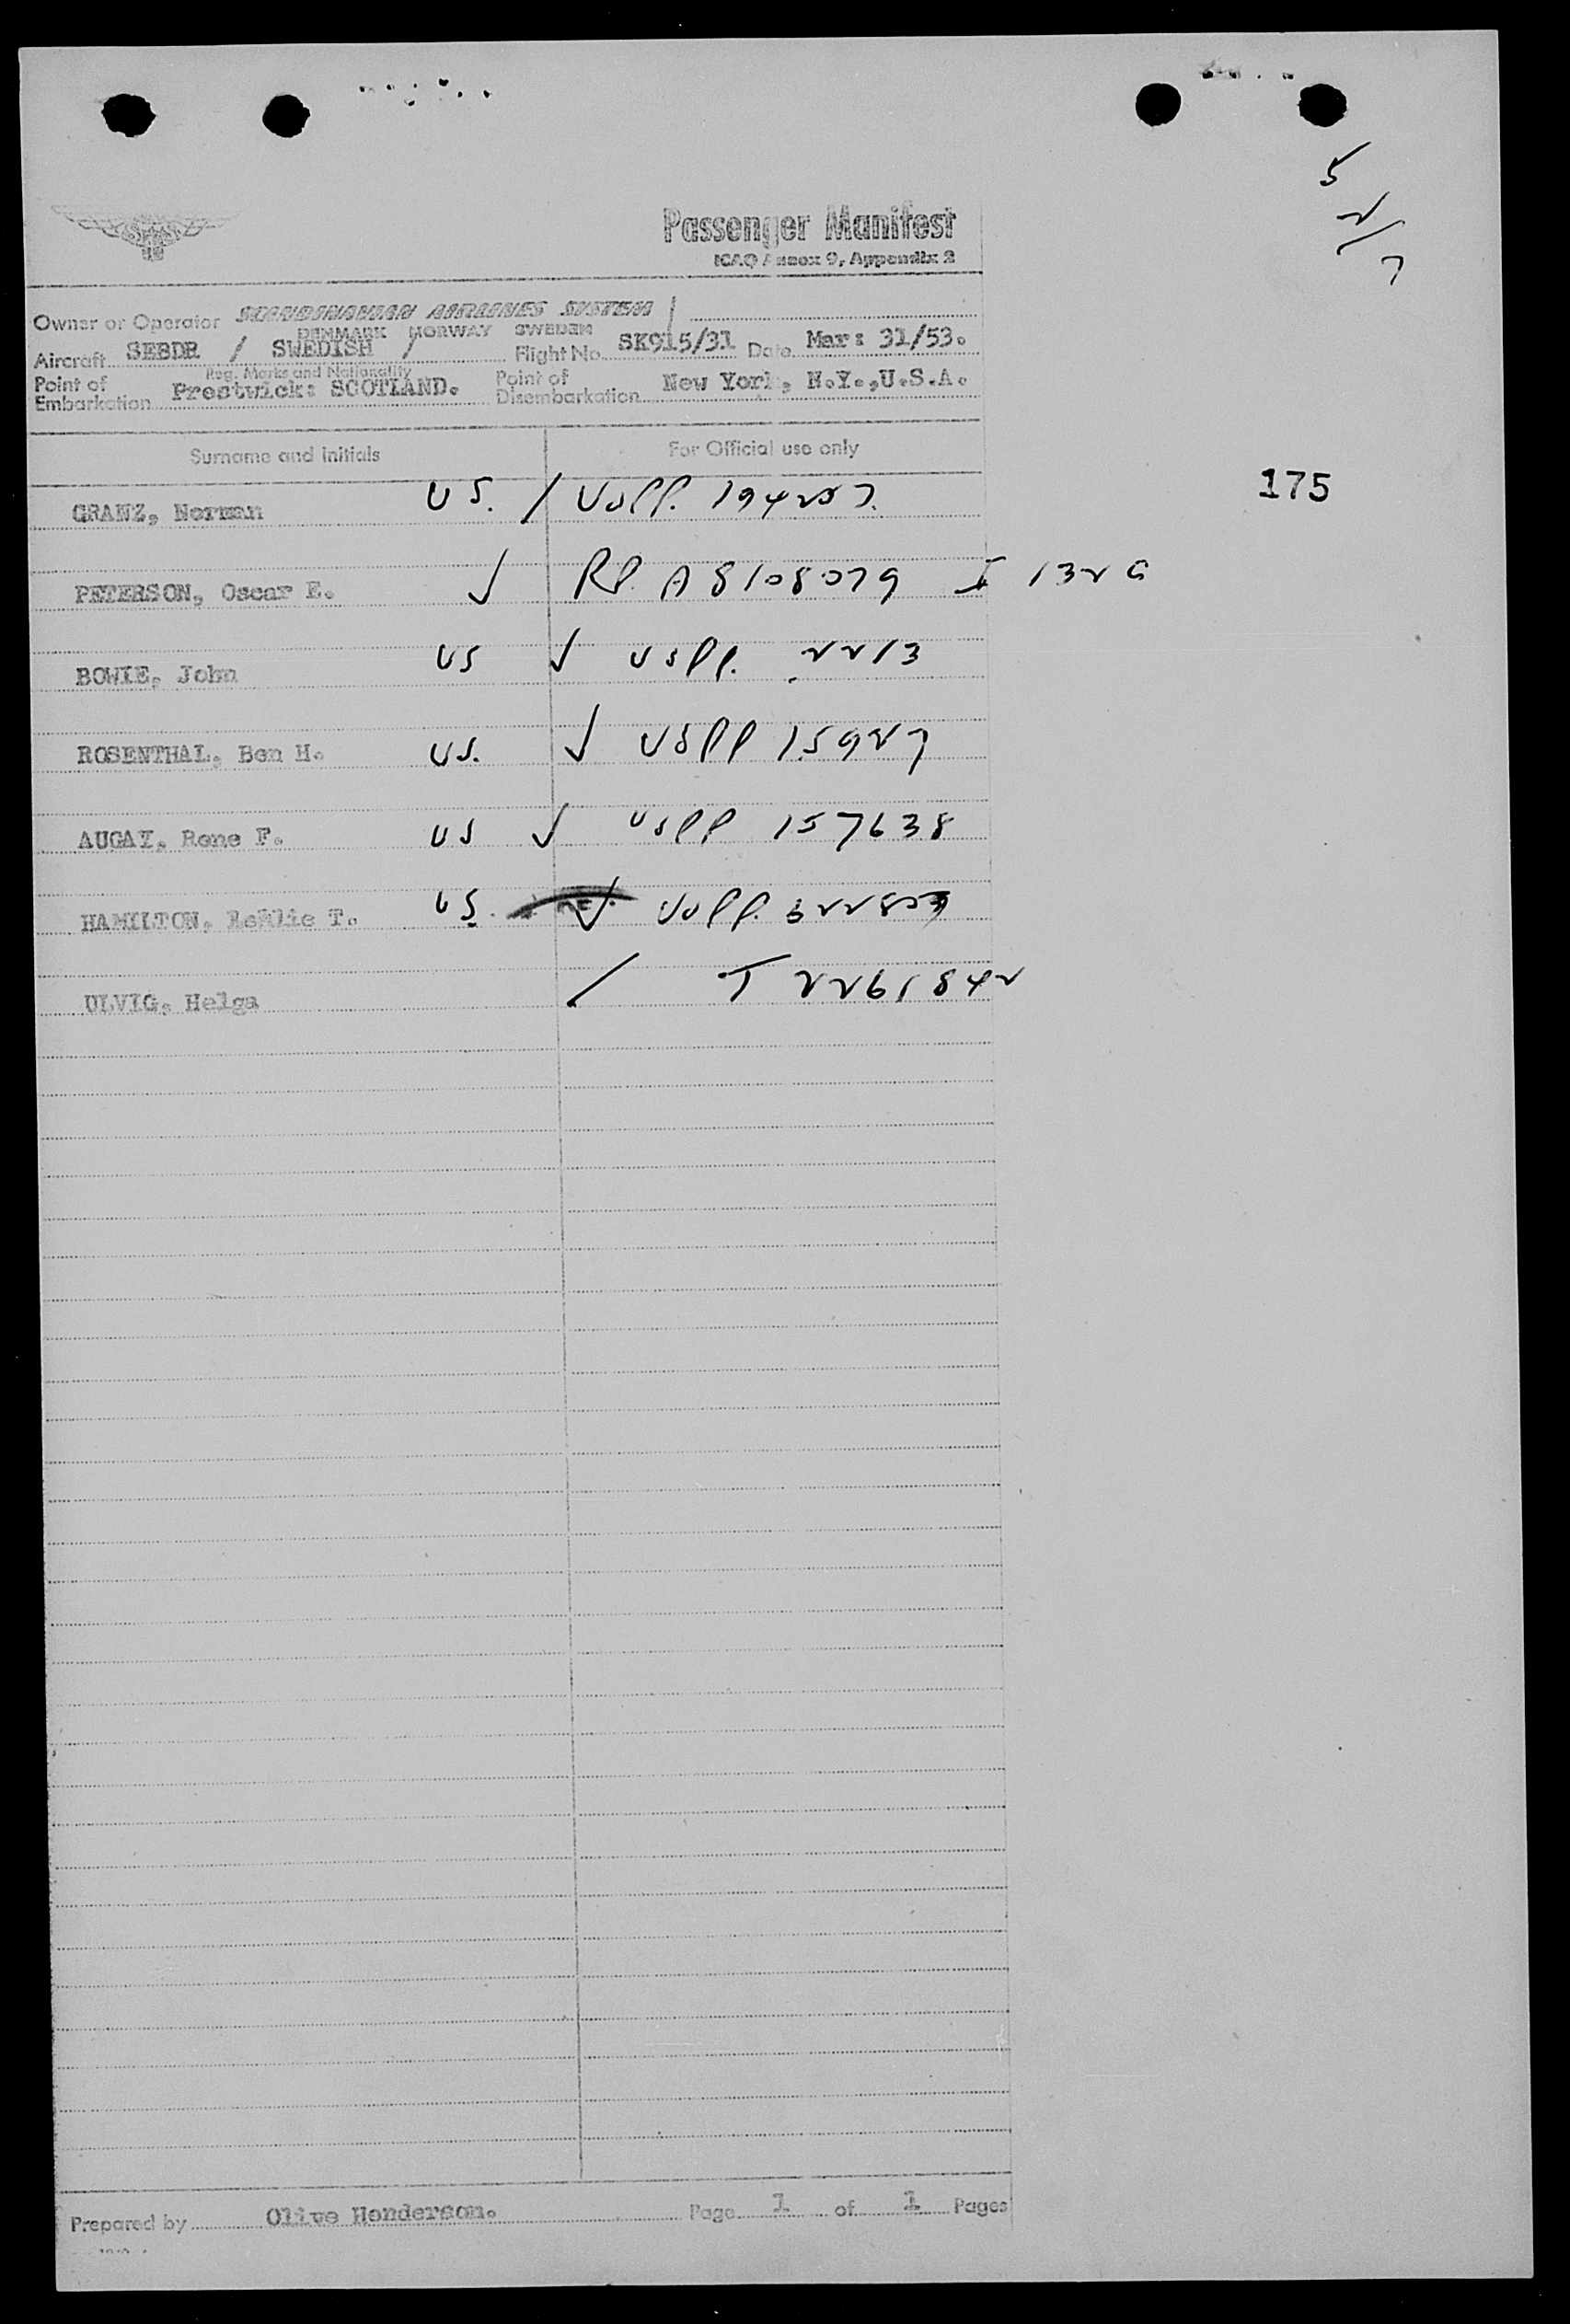 5
2/7
Passenger Manifest
ICAO Annex 9, Appendix 2
Owner or Operator SCANDINAVIAN AIRLINES SYSTEM /
DENMARK NORWAY SWEDEN
Aircraft SEBDR / SWEDISH / Flight No. SK915/31 Date Mar: 31/53.
Reg. Marks and Nationality
Point of Embarkation Prestwick: SCOTLAND. Point of Disembarkation New York, N.Y.,U.S.A.
Surname and initials For Official use only
175
GRANZ, Norman US. / USPP. 194257.
PETERSON, Oscar E. ✓ RP. A8108079 I 132a
BOWIE, John US ✓ USPP. 2213
ROSENTHAL, Ben H. US. ✓ USPP 15927
AUGAY, Rene F. US ✓ USPP 157638
HAMILTON, T. US. ✓ USPP.
ULVIG, Helga / T 2261842
Prepared by Olive Henderson. Page 1 of 1 Pages